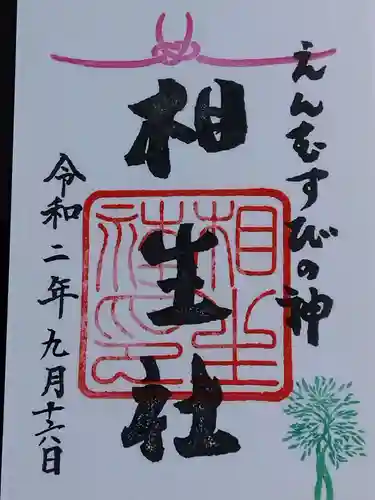 えんむすびの神
相生社
相生社印
令和二年九月十六日